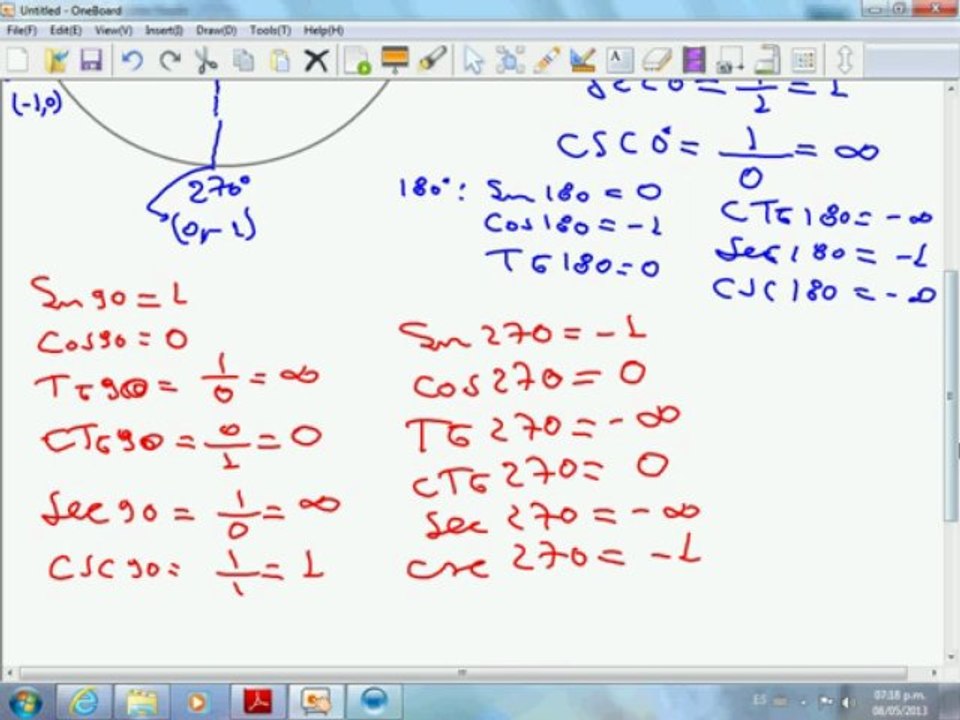 Untitled - OneBoard
File(F) Edit(E) View(V) Insert(I) Draw(D) Tools(T) Help(H)
(-1,0)
270°
(0,-1)
Sec 0 = 1/1 = 1
CSC 0° = 1/0 = ∞
180°: Sen 180 = 0
Cos 180 = -1
TG 180 = 0
CTG 180 = -∞
Sec 180 = -1
CSC 180 = -∞
Sen 90 = 1
Cos 90 = 0
TG 90 = 1/0 = ∞
CTG 90 = 0/1 = 0
Sec 90 = 1/0 = ∞
CSC 90 = 1/1 = 1
Sen 270 = -1
Cos 270 = 0
TG 270 = -∞
CTG 270 = 0
Sec 270 = -∞
csc 270 = -1
ES
07:18 p.m.
08/05/2013